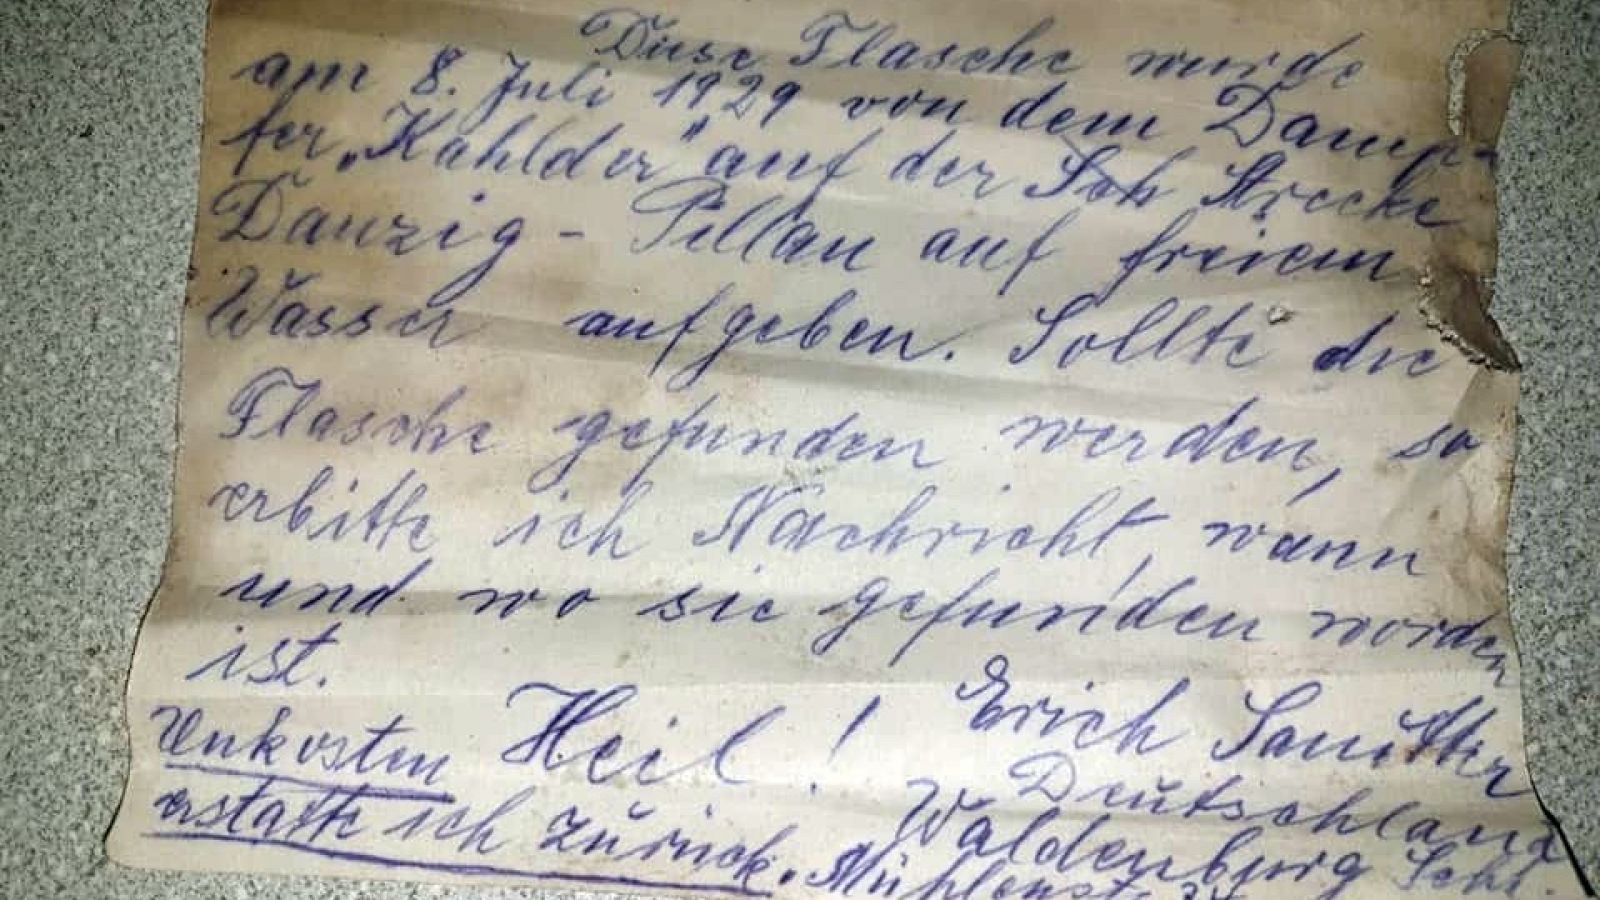 Diese Flasche wurde
am 8. Juli 1929 von dem Damp-
fer „Kahlder" auf der Strecke
Danzig - Pillau auf freiem
Wasser aufgeben. Sollte die
Flasche gefunden werden, so
erbitte ich Nachricht, wann
und wo sie gefunden worden
ist.
Heil! Erich
Unkosten Deutschland
erstatte ich zurück. Waldenburg Schl.
Mühlenstr.